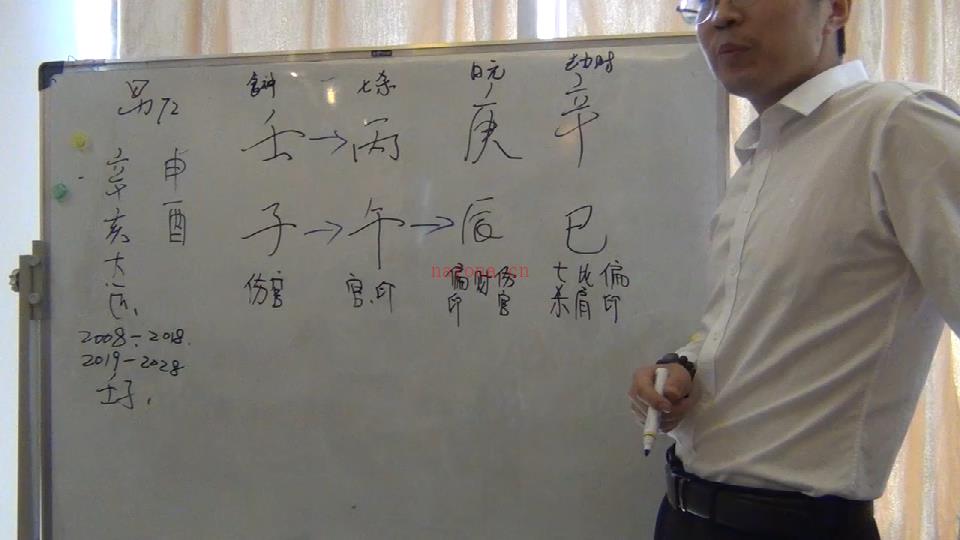 男72
食神 七杀 日元 劫财
壬→丙 庚 辛
子→午→辰 巳
伤官 官、印 偏印 财 伤官 七杀 比肩 偏印
申酉
辛亥大运
2008-2018.
2019-2028
壬子.